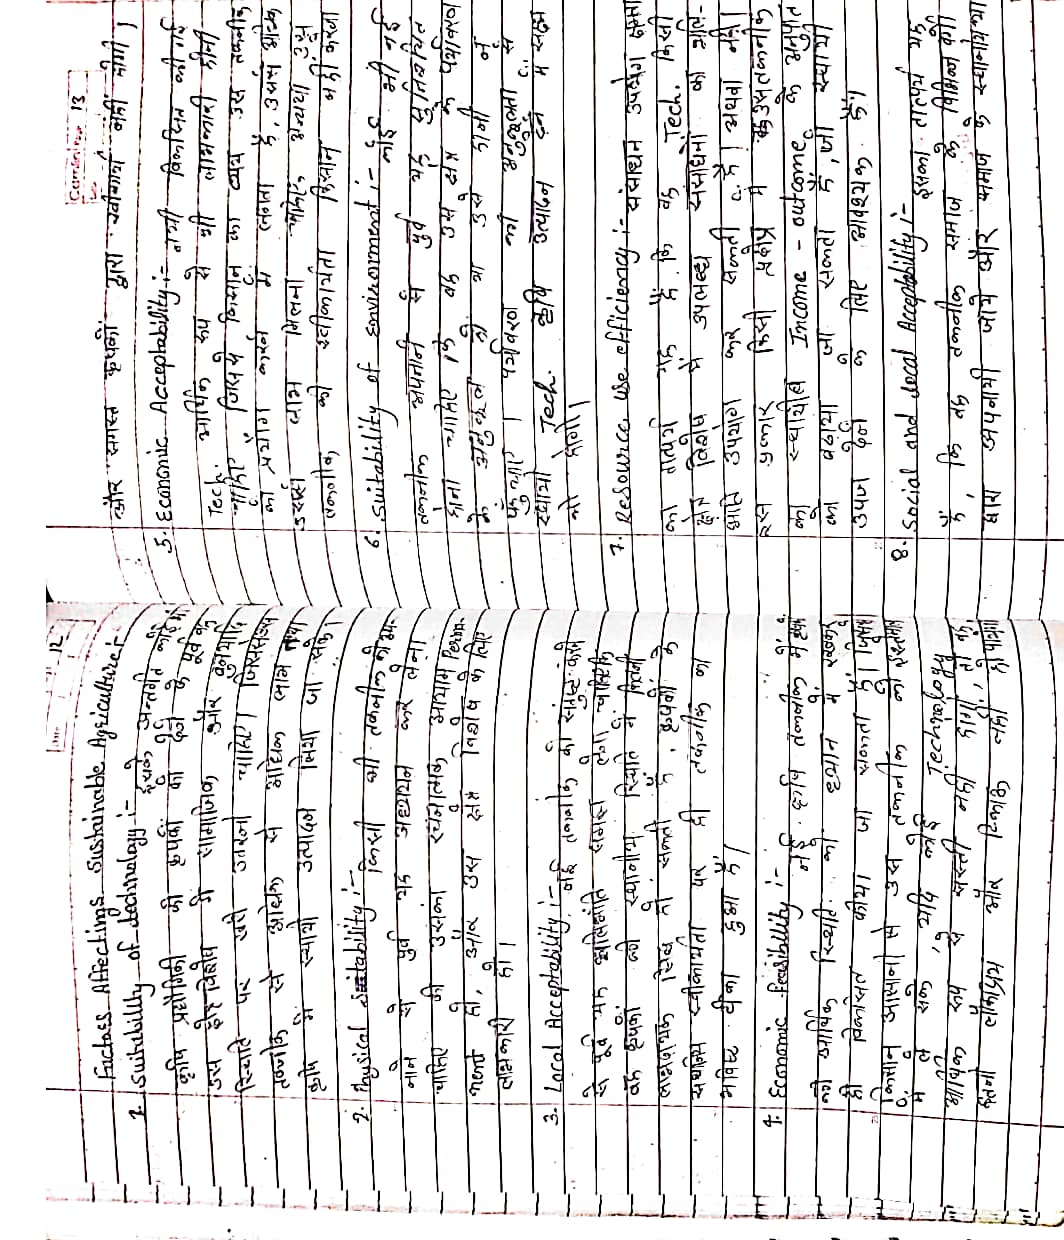 12
Factors Affecting Sustainable Agriculture:-
1. Suitability of technology :-
इसके अन्तर्गत कोई भी
कृषि प्रद्योगिकी को कृषकों को देने के पूर्व वह
उस क्षेत्र विशेष की सामाजिक और
स्थिति पर खरी उतरनी चाहिए। जिससे उस
तकनीक से अधिक से अधिक लाभ तथा
कृषि में स्थायी उत्पादन लिया जा सके।
2. Physical Suitability :-
किसी भी तकनीक को अप-
नाने से पूर्व यह अध्ययन कर लेना
चाहिए की उसका रचनात्मक आयाम
हो, और उस क्षेत्र विशेष के लिए
लाभकारी हो।
3. Local Acceptability :-
नई तकनीक को
से पूर्व यह भलिभाँति समझ लेना चाहिए कि
वह कृषकों की स्थानीय स्थिति में कितनी
लाभदायक सिद्ध हो सकती है, कृषकों के
स्वीकार्यता पर ही तकनीक का
भविष्य टीका हुआ है।
4. Economic Feasibility :-
नई कृषि तकनीक में कृषक
की आर्थिक स्थिति को ध्यान में रखकर
ही विकसित कीया जा सकता है।
किसान आसानी से उस तकनीक को इस्तेमाल
में ले सके, यदि कोई Technology
आर्थिक रूप से सस्ती नहीं होगी, तो वह
इतनी लोकप्रिय और टिकाऊ नहीं हो पायेगी
13
और समस्त कृषकों द्वारा स्वीकार्य नहीं होगी।
5. Economic Acceptability :-
नयी विकसित की गई
Tech. आर्थिक रूप से भी लाभकारी होनी
चाहिए जिसमें किसान का व्यय उस तकनीक
को प्रयोग करने में लगता है, उससे अधिक
उससे लाभ मिलना चाहिए, अन्यथा उस
तकनीक को स्वीकार्यता किसान नहीं करता
6. Suitability of environment :-
कोई भी नई
तकनीक अपनाने से पूर्व यह सुनिश्चित
होना चाहिए कि वह उस क्षेत्र के पर्यावरण
के अनुकूल हो या उस हानी न
पहुंचाए। पर्यावरण की अनुकूलता से
स्थायी Tech. कृषि उत्पादन देने में सक्षम
भी होगी।
7. Resource use efficiency :- संसाधन उपयोग क्षमता
का तात्पर्य यह है कि वह Tech. किसी
क्षेत्र विशेष में उपलब्ध संसाधनों का भलि-
भाति उपयोग कर सकती है। अथवा नहीं।
इस प्रकार किसी क्षेत्र में वह उस तकनीक
का स्थायीत्व Income - outcome के अनुपात
को बढ़ाया जा सकता है, जो स्थायी
उपज देने के लिए आवश्यक है।
8. Social and Local Acceptability :-
इसका तात्पर्य यह
है, कि वह तकनीक समाज के विभिन्न वर्गों
द्वारा अपनायी जाये और समाज के